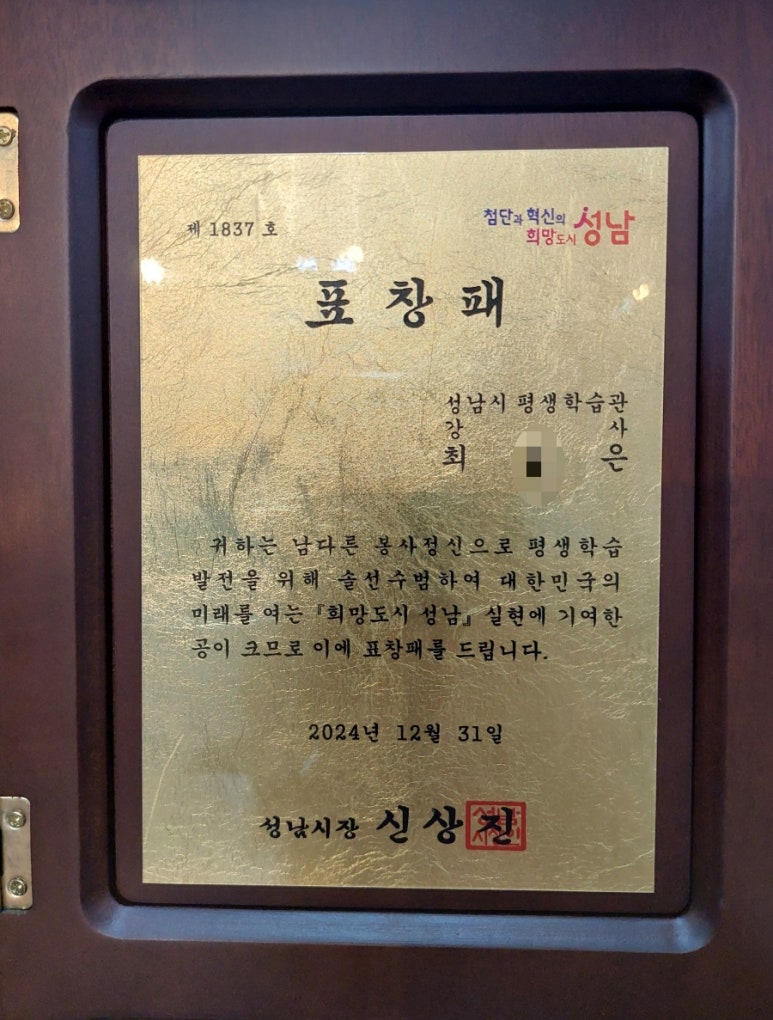 제 1837 호
첨단과 혁신의
희망도시 성남
표창패
성남시 평생학습관
강 사
최 은
귀하는 남다른 봉사정신으로 평생학습
발전을 위해 솔선수범하여 대한민국의
미래를 여는 『희망도시 성남』 실현에 기여한
공이 크므로 이에 표창패를 드립니다.
2024년 12월 31일
성남시장 신상진